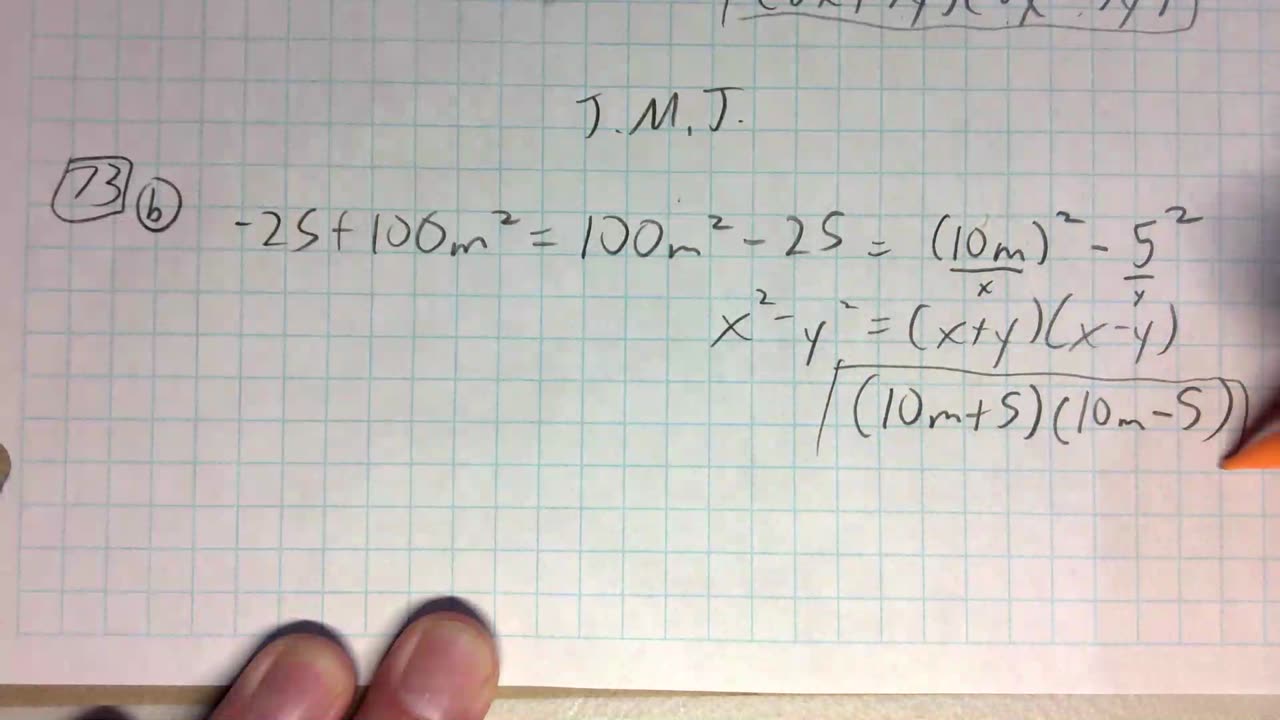 J.M.J.
73 b -25+100m² = 100m² - 25 = (10m)² - 5²
x y
x² - y² = (x+y)(x-y)
(10m+5)(10m-5)